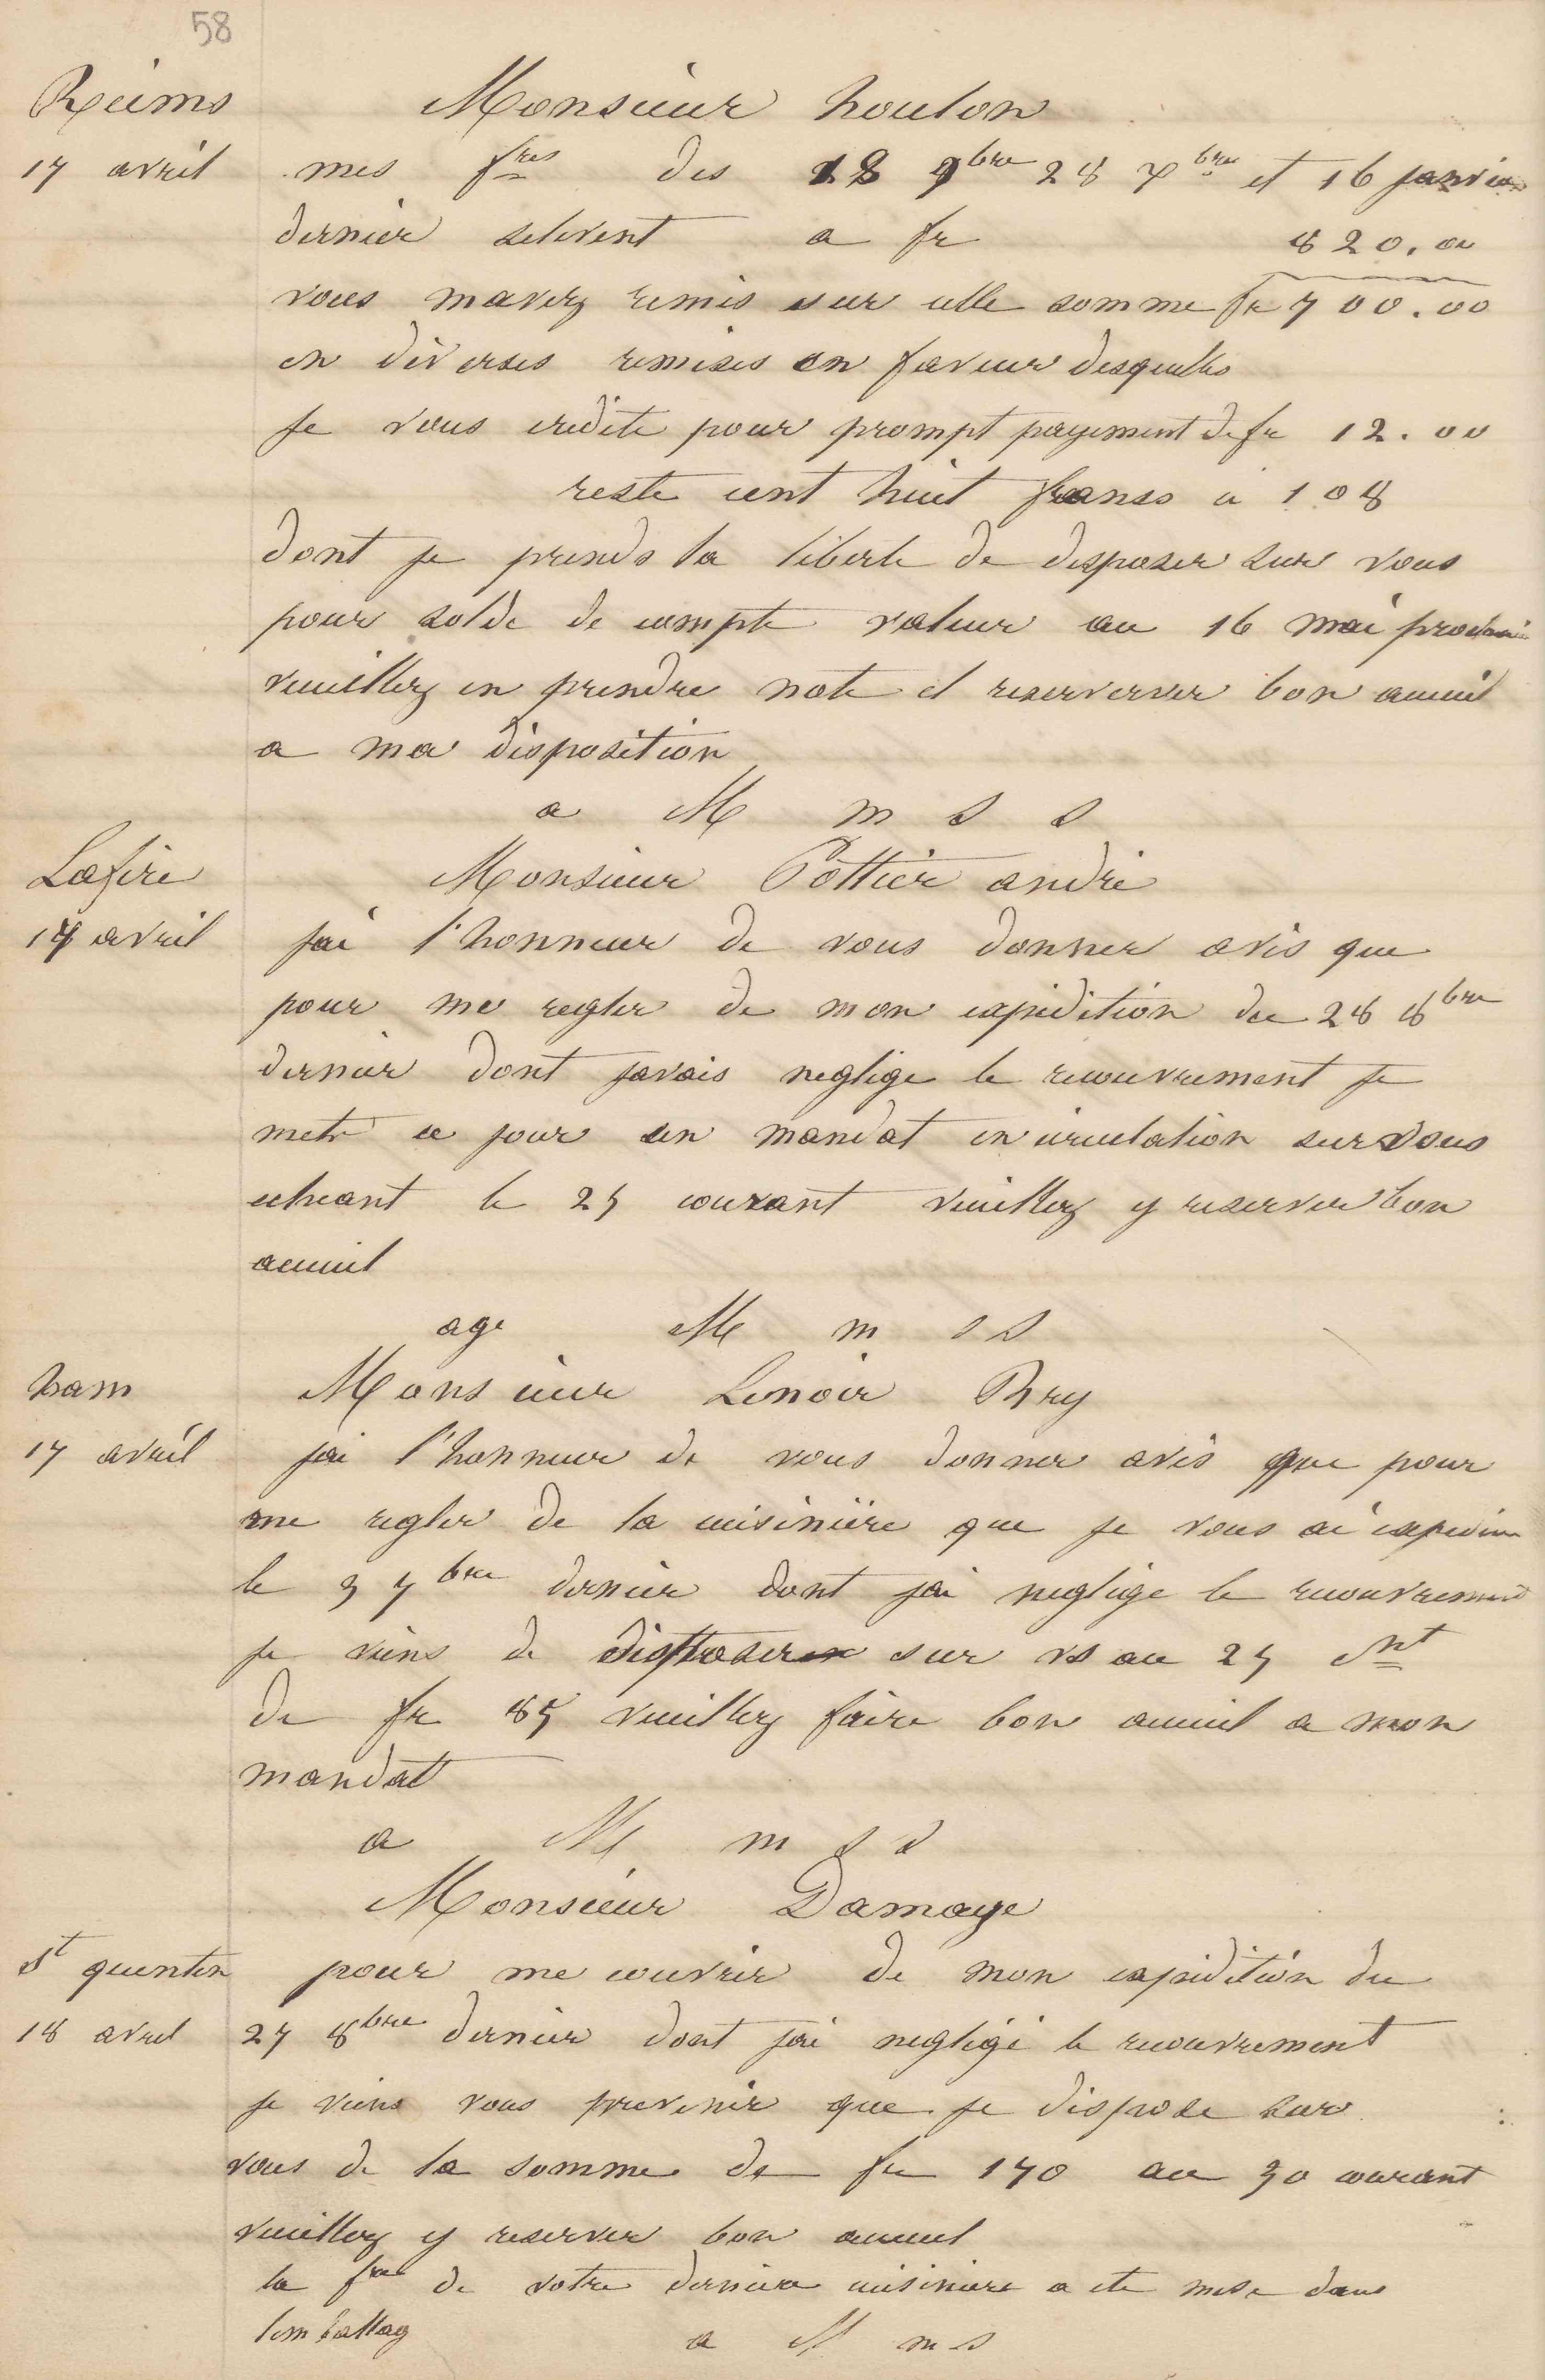 58
Reims Monsieur houlon
17 avril mes fres des 18 9bre 28 xbre et 16 janvier
dernier selevent a fr 820.00
vous mavez remis sur cette somme fr 700.00
en diverses remises en faveur desquelles
Je vous credite pour prompt payement de fr 12.00
reste cent huit frans à 108
dont je prends la liberte de disposer sur vous
pour solde de compte valeur au 16 mai prochain
veuillez en prendre note et reserverver bon acceuil
a ma disposition
a M m s s
Lafère Monsieur Pottier andré
17 avril jai l'honneur de vous donner avis que
pour me regler de mon expedition du 28 8bre
dernier dont javais neglige le recouvrement je
mets ce jour un mandat en circulation sur vous
echeant le 25 courant veuillez y reserver bon
acceuil
age M m s s
ham Monsieur Lenoir Rry
17 avril jai l'honneur de vous donner avis que pour
me regler de la cuisinière que je vous ai expedier
le 3 7bre dernier dont jai neglige le recouvrement
je viens de disposer sur vs au 25 Ct
de fr 85 veuillez faire bon acceuil a mon
mandat
a M m s s
Monsieur Damaye
St quentin pour me couvrir de mon expédition du
18 avril 27 8bre dernier dont jai negligé le recouvrement
je viens vous prevenir que je dispose sur
vous de la somme de fr 170 au 30 courant
veuillez y reserver bon acceuil
la fre de votre derniere cuisiniere a ete mise dans
lemballag a M m s